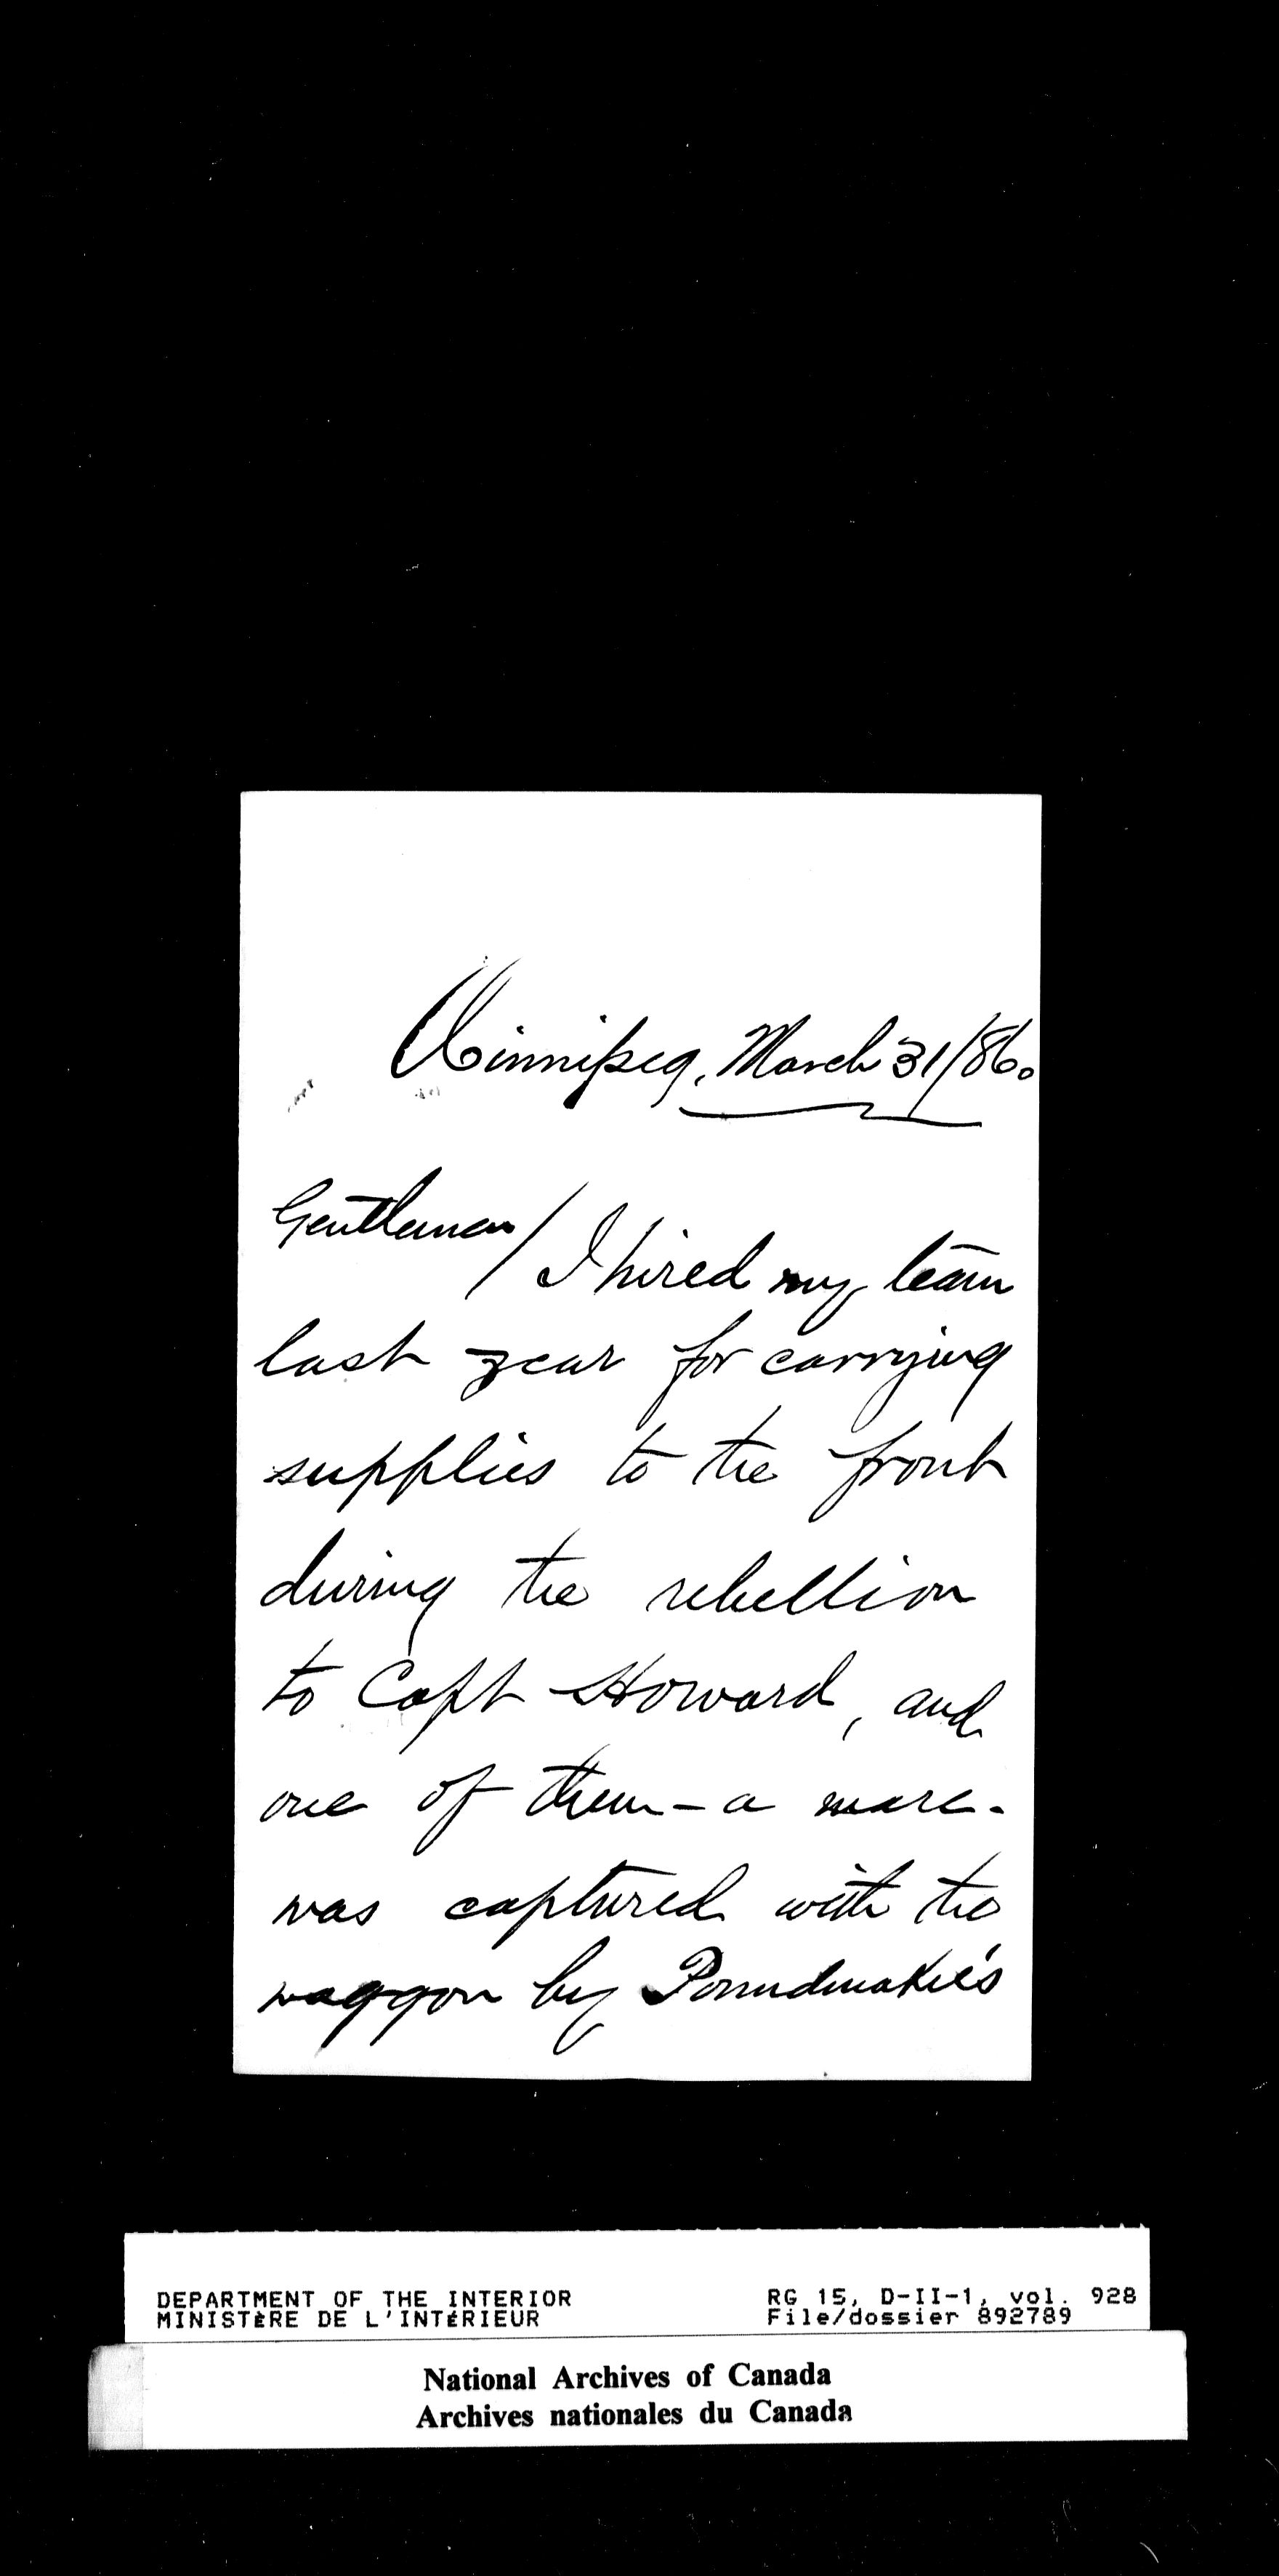 Winnipeg, March 31/86.
Gentlemen/
I hired my team
last year for carrying
supplies to the front
during the rebellion
to Capt Howard, and
one of them - a mare -
was captured with the
waggon by Poundmaker's
DEPARTMENT OF THE INTERIOR
MINISTÈRE DE L'INTÉRIEUR
RG 15, D-II-1, vol. 928
File/dossier 892789
National Archives of Canada
Archives nationales du Canada